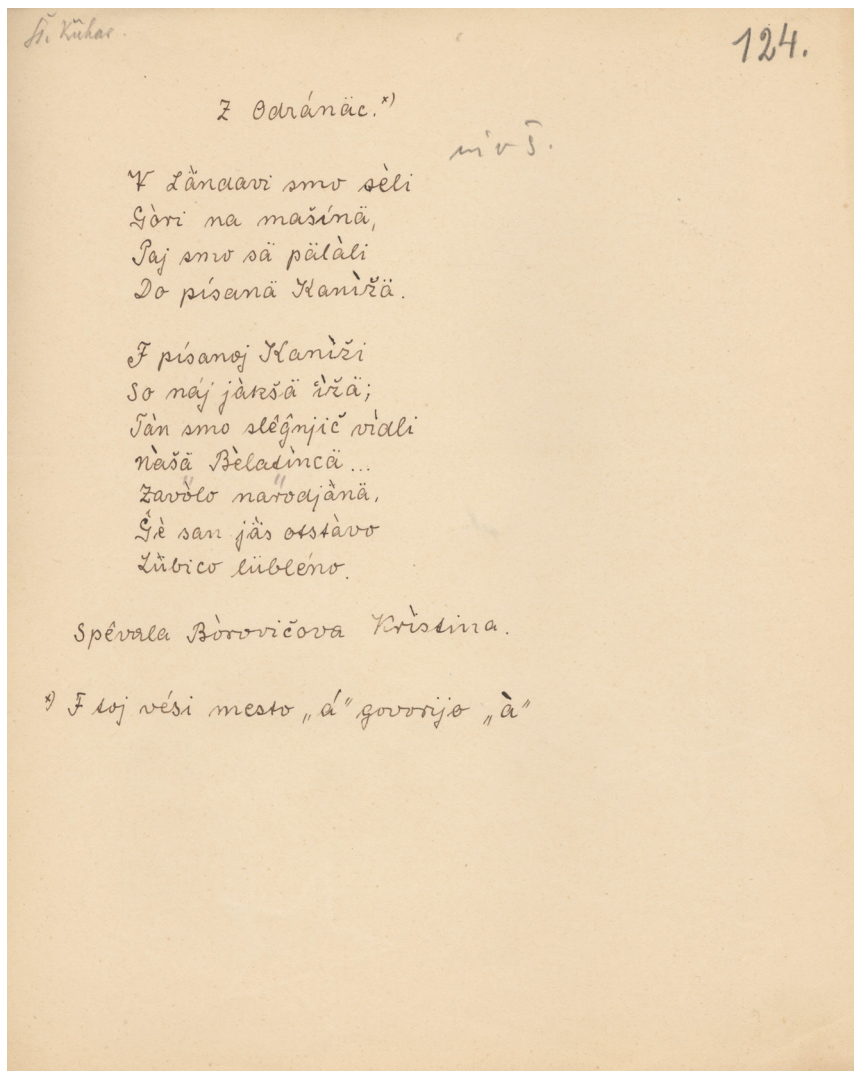 Št. Kühar.
124.
Z Odránäc.ˣ⁾
ni v Š.
V Ländavi smo sèli
Gòri na mašínä,
Paj smo sä pälàli
Do písanä Kanìžä.
F písanoj Kanìži
So náj jàkšä ìžä;
Tàn smo slêĝnjič vìdli
Nàšä Bèlatìncä...
Zavòlo narodjànä,
Ĝè san jäs otstàvo
Lübico lübléno.
Spêvala Bòrovičova Krìstina.
ˣ⁾ F toj vési mesto „á" govorijo „à"